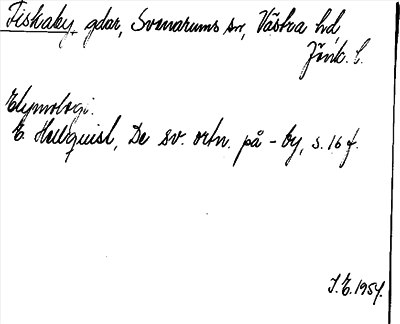 Fiskaby, gdar, Svenarums sn, Västra hd,
Jönk. l.
Etymologi.
E. Hellquist, De sv. ortn. på -by, s. 16 f.
J.E. 1954.